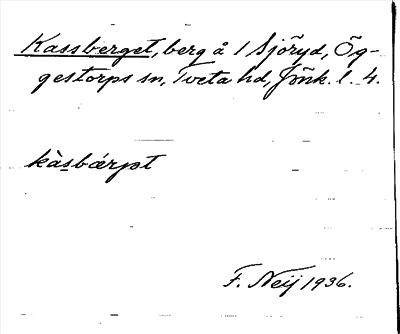 Kassberget, berg å 1 Sjöryd, Ög-
gestorps sn, Tveta hd, Jönk. l. 4.
kàsbærjɛt
F. Neij 1936.